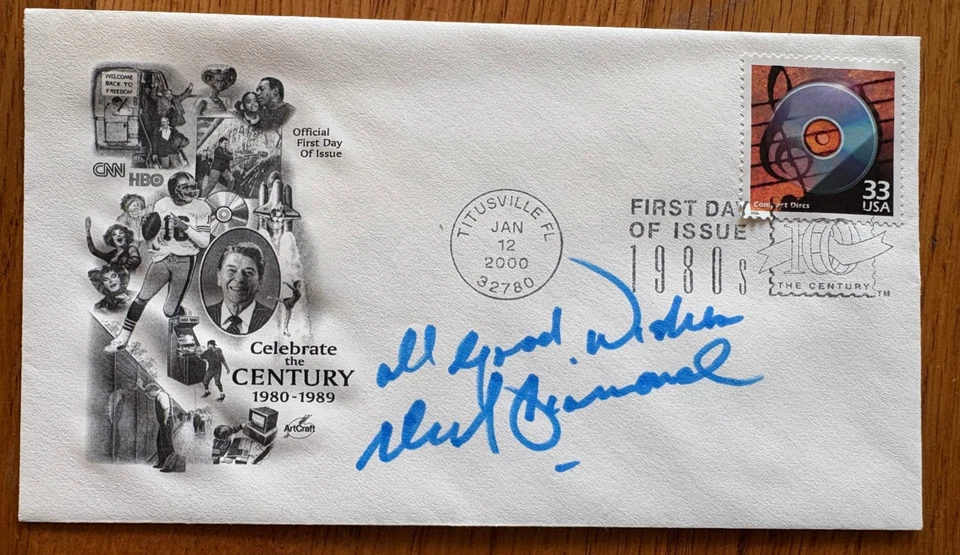 WELCOME
BACK TO
FREEDOM
Official
First Day
Of Issue
CNN
HBO
Celebrate
the
CENTURY
1980-1989
ArtCraft
TITUSVILLE FL
JAN
12
2000
32780
FIRST DAY
OF ISSUE
1980s
100
THE CENTURY™
Compact Discs
33
USA
all good wishes
Neil Diamond